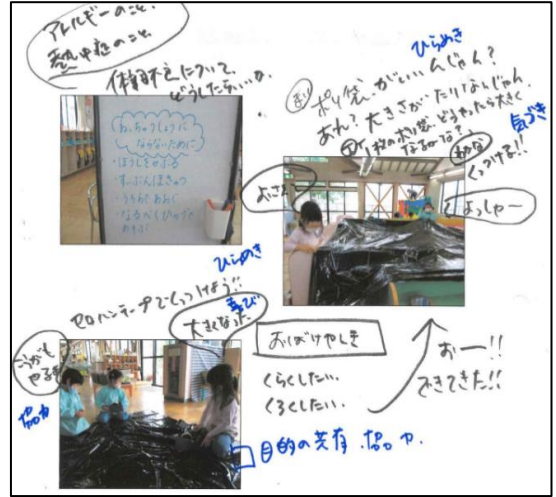 アレルギーのこと、
熱中症のこと、
体調不良について、
どうしたらいいか。
ねっちゅうしょうに
ならないために
・ぼうしをかぶる
・すいぶんほきゅう
・うちわであおぐ
・なるべくひかげで
あそぶ
ひらめき
ポリ袋がいいんじゃん?
あれ?大きさがたりないじゃん
気づき
くっつける!!
よっしゃ〜
ひらめき
セロハンテープでくっつけよう!!
喜び
大きくなった
協力
おばけやしき
くらくしたい。
くろくしたい。
おー!!
できてきた!!
目的の共有、協力。